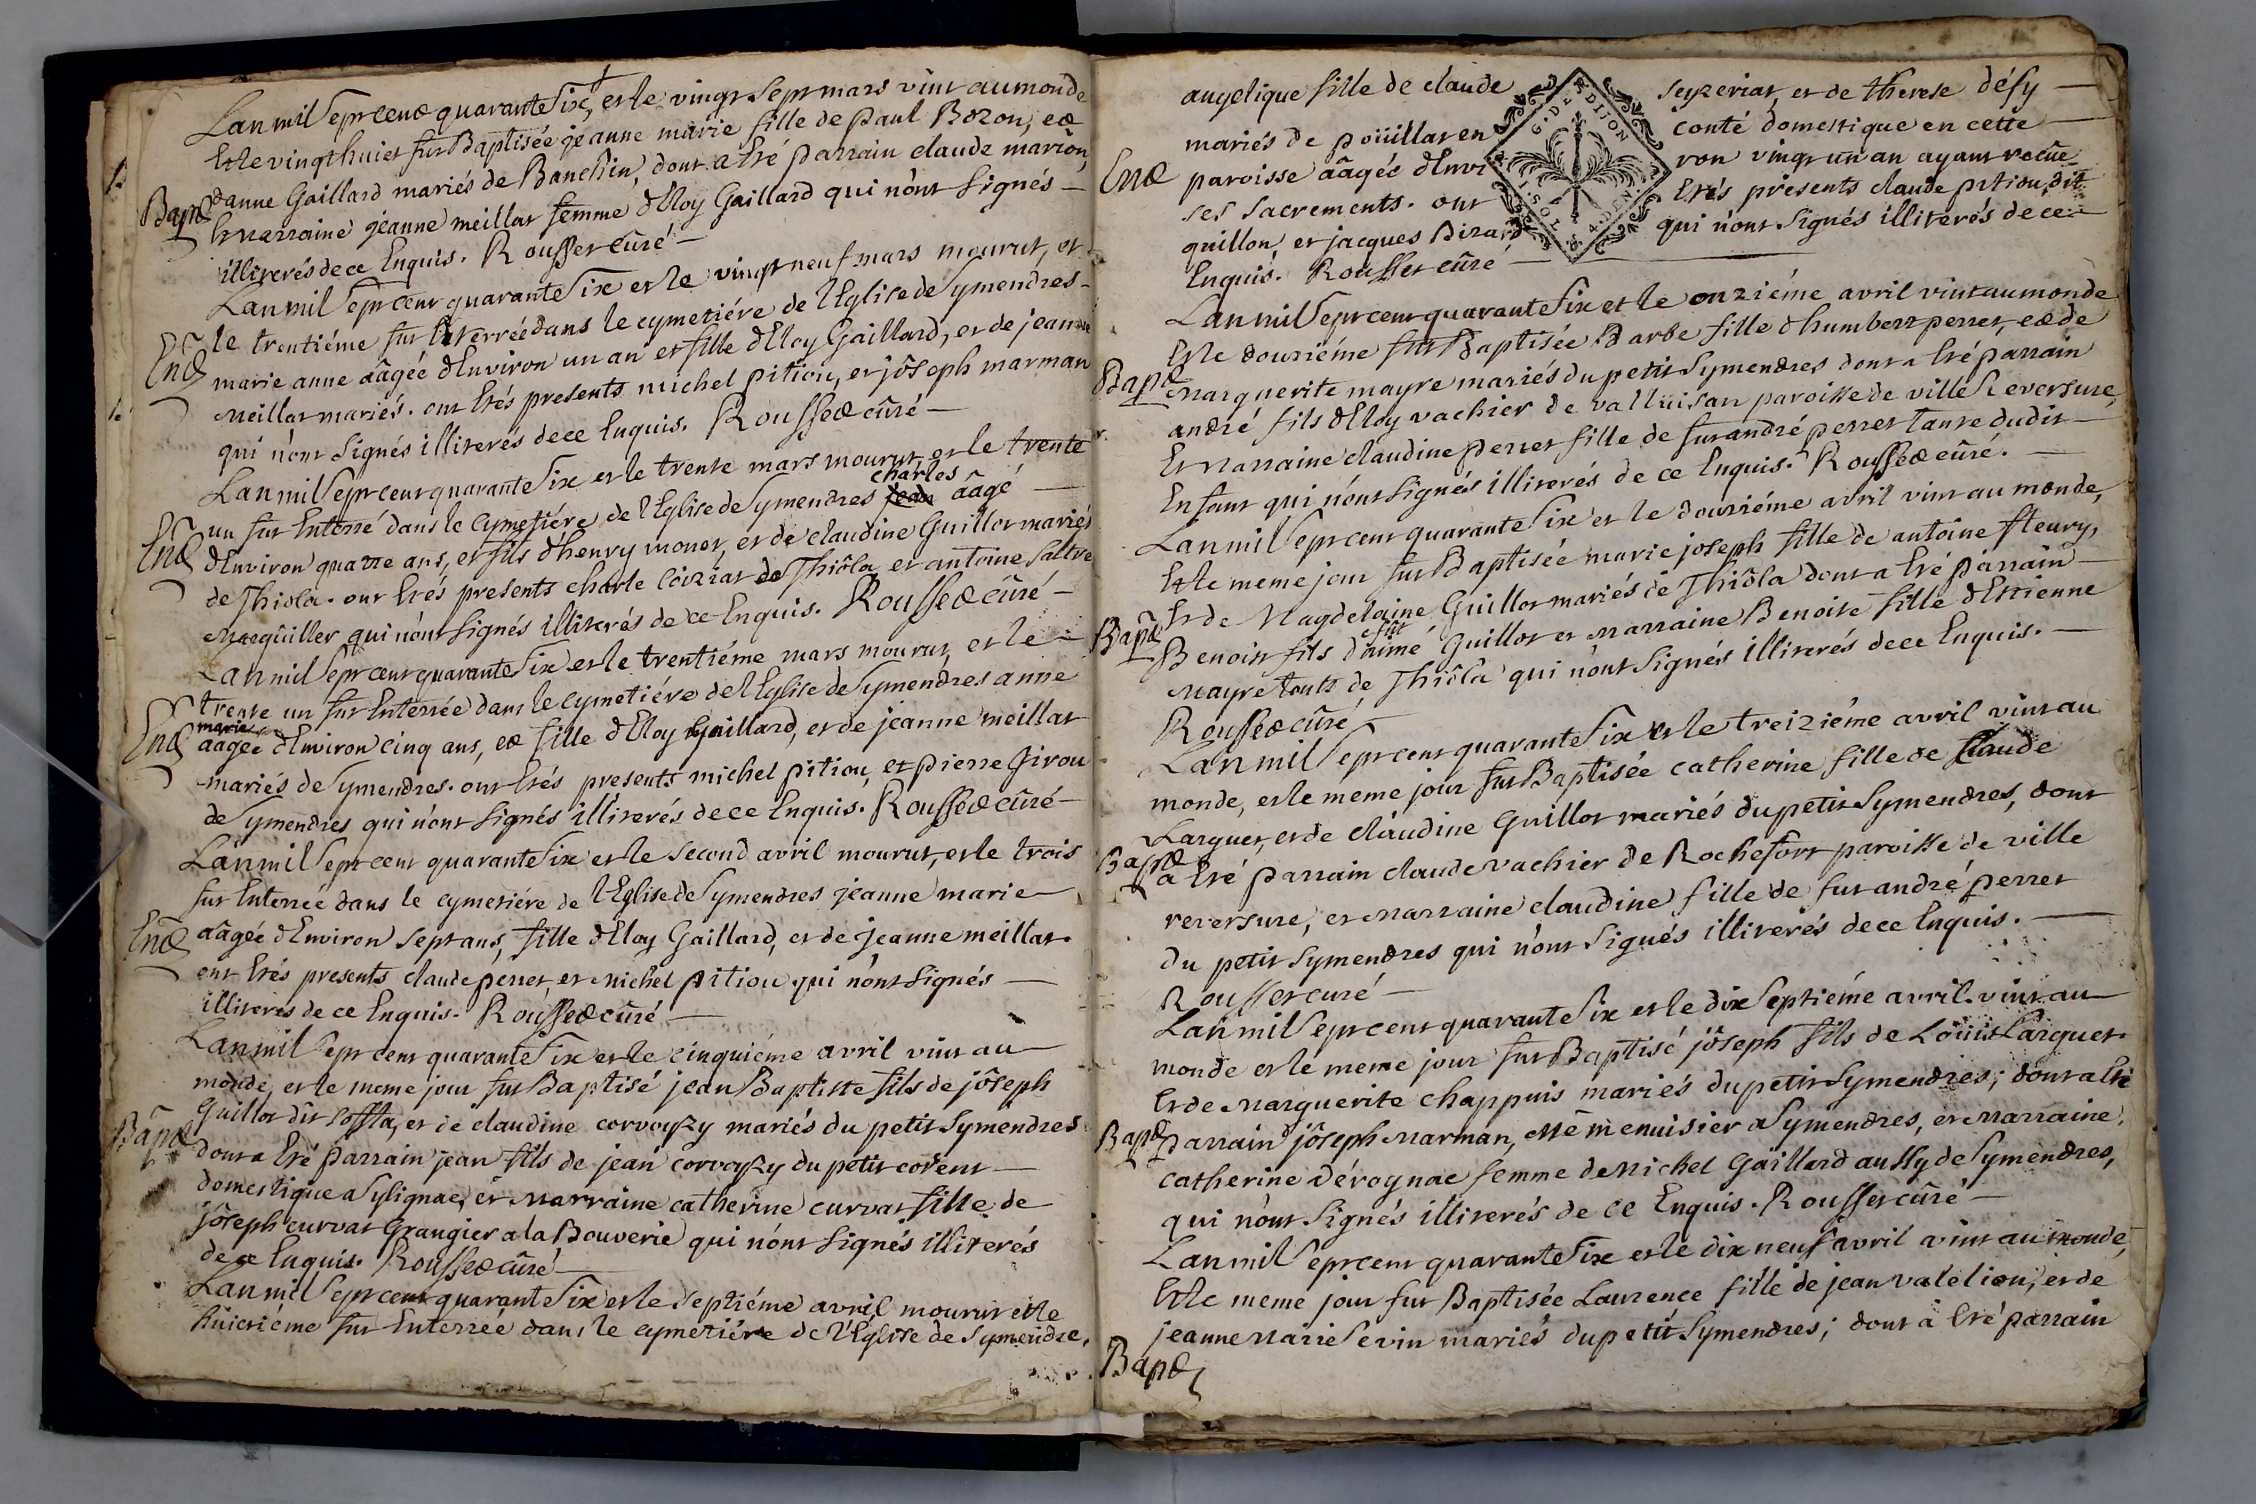 Lan mil Sept cent quarante Six, et le vingt Sept mars vint au monde
Et le vingt huict fut Baptisée jeanne marie fille de Paul Bozon, et
Bapt
danne Gaillard mariés de Banchin, dont a Eté parrain claude marion,
Et marraine jeanne meillat femme dEloy Gaillard qui n'ont Signés —
illiterés de ce Enquis. Rousset curé —
Lan mil Sept cent quarante Six et le vingt neuf mars mourut, et
le trentiéme fut Enterrée dans le cymetiére de lEglise de Symendres -
Ent
marie anne âagée dEnviron un an et fille dEloy Gaillard, et de jeanne
meillat mariés. ont Etés presents michel pitiou, et jôseph marman
qui n'ont Signés illiterés de ce Enquis. Rousset curé —
Lan mil Sept cent quarante Six et le trente mars mourut, et le trente
charles
un fut Enterré dans le Cymetiére de lEglise de Symendres jean âagé —
Ent
dEnviron quatre ans, et fils d'henry monet, et de claudine Guillot mariés
de Thiôla. ont Etés presents charle Coiziat de Thiôla et antoine
marguiller qui n'ont Signés illiterés de ce Enquis. Rousset curé —
Lan mil Sept cent quarante Six et le trentiéme mars mourut, et le —
trente un fut Enterrée dans le cymetiére de lEglise de Symendres anne
marie
Ent
âagée dEnviron cinq ans, et fille dEloy Gaillard, et de jeanne meillat
mariés de Symendres. ont Etés presents michel pitiou, et pierre Girou
de Symendres qui n'ont Signés illiterés de ce Enquis. Rousset curé —
Lan mil Sept cent quarante Six et le Second avril mourut, et le trois
fut Enterrée dans le cymetiére de lEglise de Symendres jeanne marie —
Ent
âagée dEnviron Sept ans, fille dEloy Gaillard, et de jeanne meillat.
ont Etés presents claude perret, et michel pitiou qui n'ont Signés —
illiterés de ce Enquis. Rousset curé —
Lan mil Sept cent quarante Six et le cinquiéme avril vint au —
monde, et le meme jour fut Baptisé jean Baptiste fils de jôseph
Guillot dit Coffta, et de claudine corvoyzy mariés du petit Symendres
Bapt
dont a Eté parrain jean fils de jean corvoyzy du petit corent —
domestique a Sylignac, et marraine catherine curvat fille de
jôseph curvat Grangier a la Bouverie qui n'ont Signés illiterés
de ce Enquis. Rousset curé —
Lan mil Sept cent quarante Six et le Septiéme avril mourut et le
huictiéme fut Enterrée dans le cymetiére de l'Eglise de Symendre,
angelique fille de claude Seyzeriat, et de therese désy —
mariés de poüillat en conté domestique en cette —
Ent
paroisse âagée dEnviron vingt un an ayant recûe
ses Sacrements. ont Etés présents claude pitiou, dit
quillon, et jacques Bizard qui n'ont Signés illiterés de ce —
Enquis. Rousset curé —
G. DE DIJON
1. SOL 4. DEN.
Lan mil Sept cent quarante Six et le onziéme avril vint au monde
Et le douziéme fut Baptisée Barbe fille d'humbert perret, et de
Bapt
Marguerite mayre mariés du petit Symendres dont a Eté parrain
andré fils dEloy vachier de valluisan paroisse de ville reversure,
Et marraine claudine perret fille de fut andré perret tante dudit —
Enfant qui n'ont Signés illiterés de ce Enquis. Rousset curé. —
Lan mil Sept cent quarante Six et le douziéme avril vint au monde,
Et le meme jour fut Baptisée marie joseph fille de antoine fleury,
Et de Magdelaine Guillot mariés de Thiôla dont a Eté parrain —
Bapt
Benoist fils d'aimé Guillot et marraine Benoite fille dEstienne
Mayre touts de Thiôla qui n'ont Signés illiterés de ce Enquis. —
Rousset curé —
Lan mil Sept cent quarante Six et le treiziéme avril vint au
monde, et le meme jour fut Baptisée catherine fille de claude
Larguet, et de claudine Guillot mariés du petit Symendres, dont
Bapt
a Eté parrain claude vachier de Rochefort paroisse de ville
reversure, et marraine claudine fille de fut andré perret
du petit Symendres qui n'ont Signés illiterés de ce Enquis. —
Rousset curé —
Lan mil Sept cent quarante Six et le dix Septiéme avril vint au —
monde et le meme jour fut Baptisé jôseph fils de Loüis Larguet.
Et de Marguerite chappuis mariés du petit Symendres; dont a Eté
Bapt
parrain jôseph Marman, mê menuisier a Symendres, et Marraine
catherine dérognac femme de Michel Gaillard aussy de Symendres,
qui n'ont Signés illiterés de ce Enquis. Rousset curé —
Lan mil Sept cent quarante Six et le dix neuf avril vint au monde,
Et le meme jour fut Baptisée Laurence fille de jean valélion, et de
jeanne Marie Sevin mariés du petit Symendres; dont à Eté parrain
Bapt